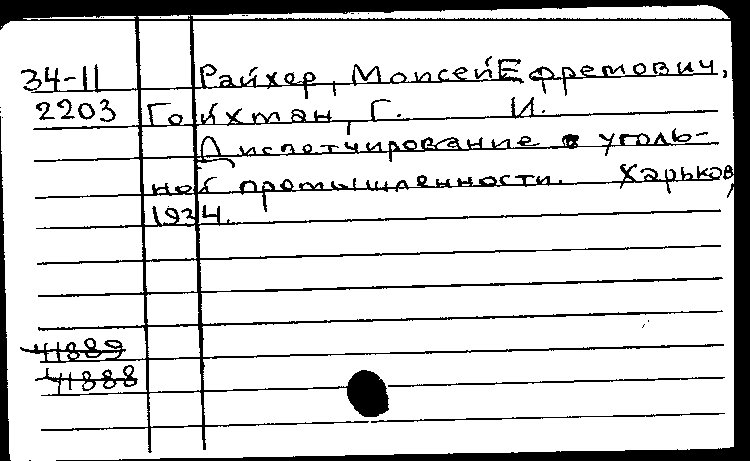 34-11 Райхер, Моисей Ефремович,
2203 Гойхман, Г. И.
Диспетчирование в уголь-
ной промышленности. Харьков,
1934.
41889
41888